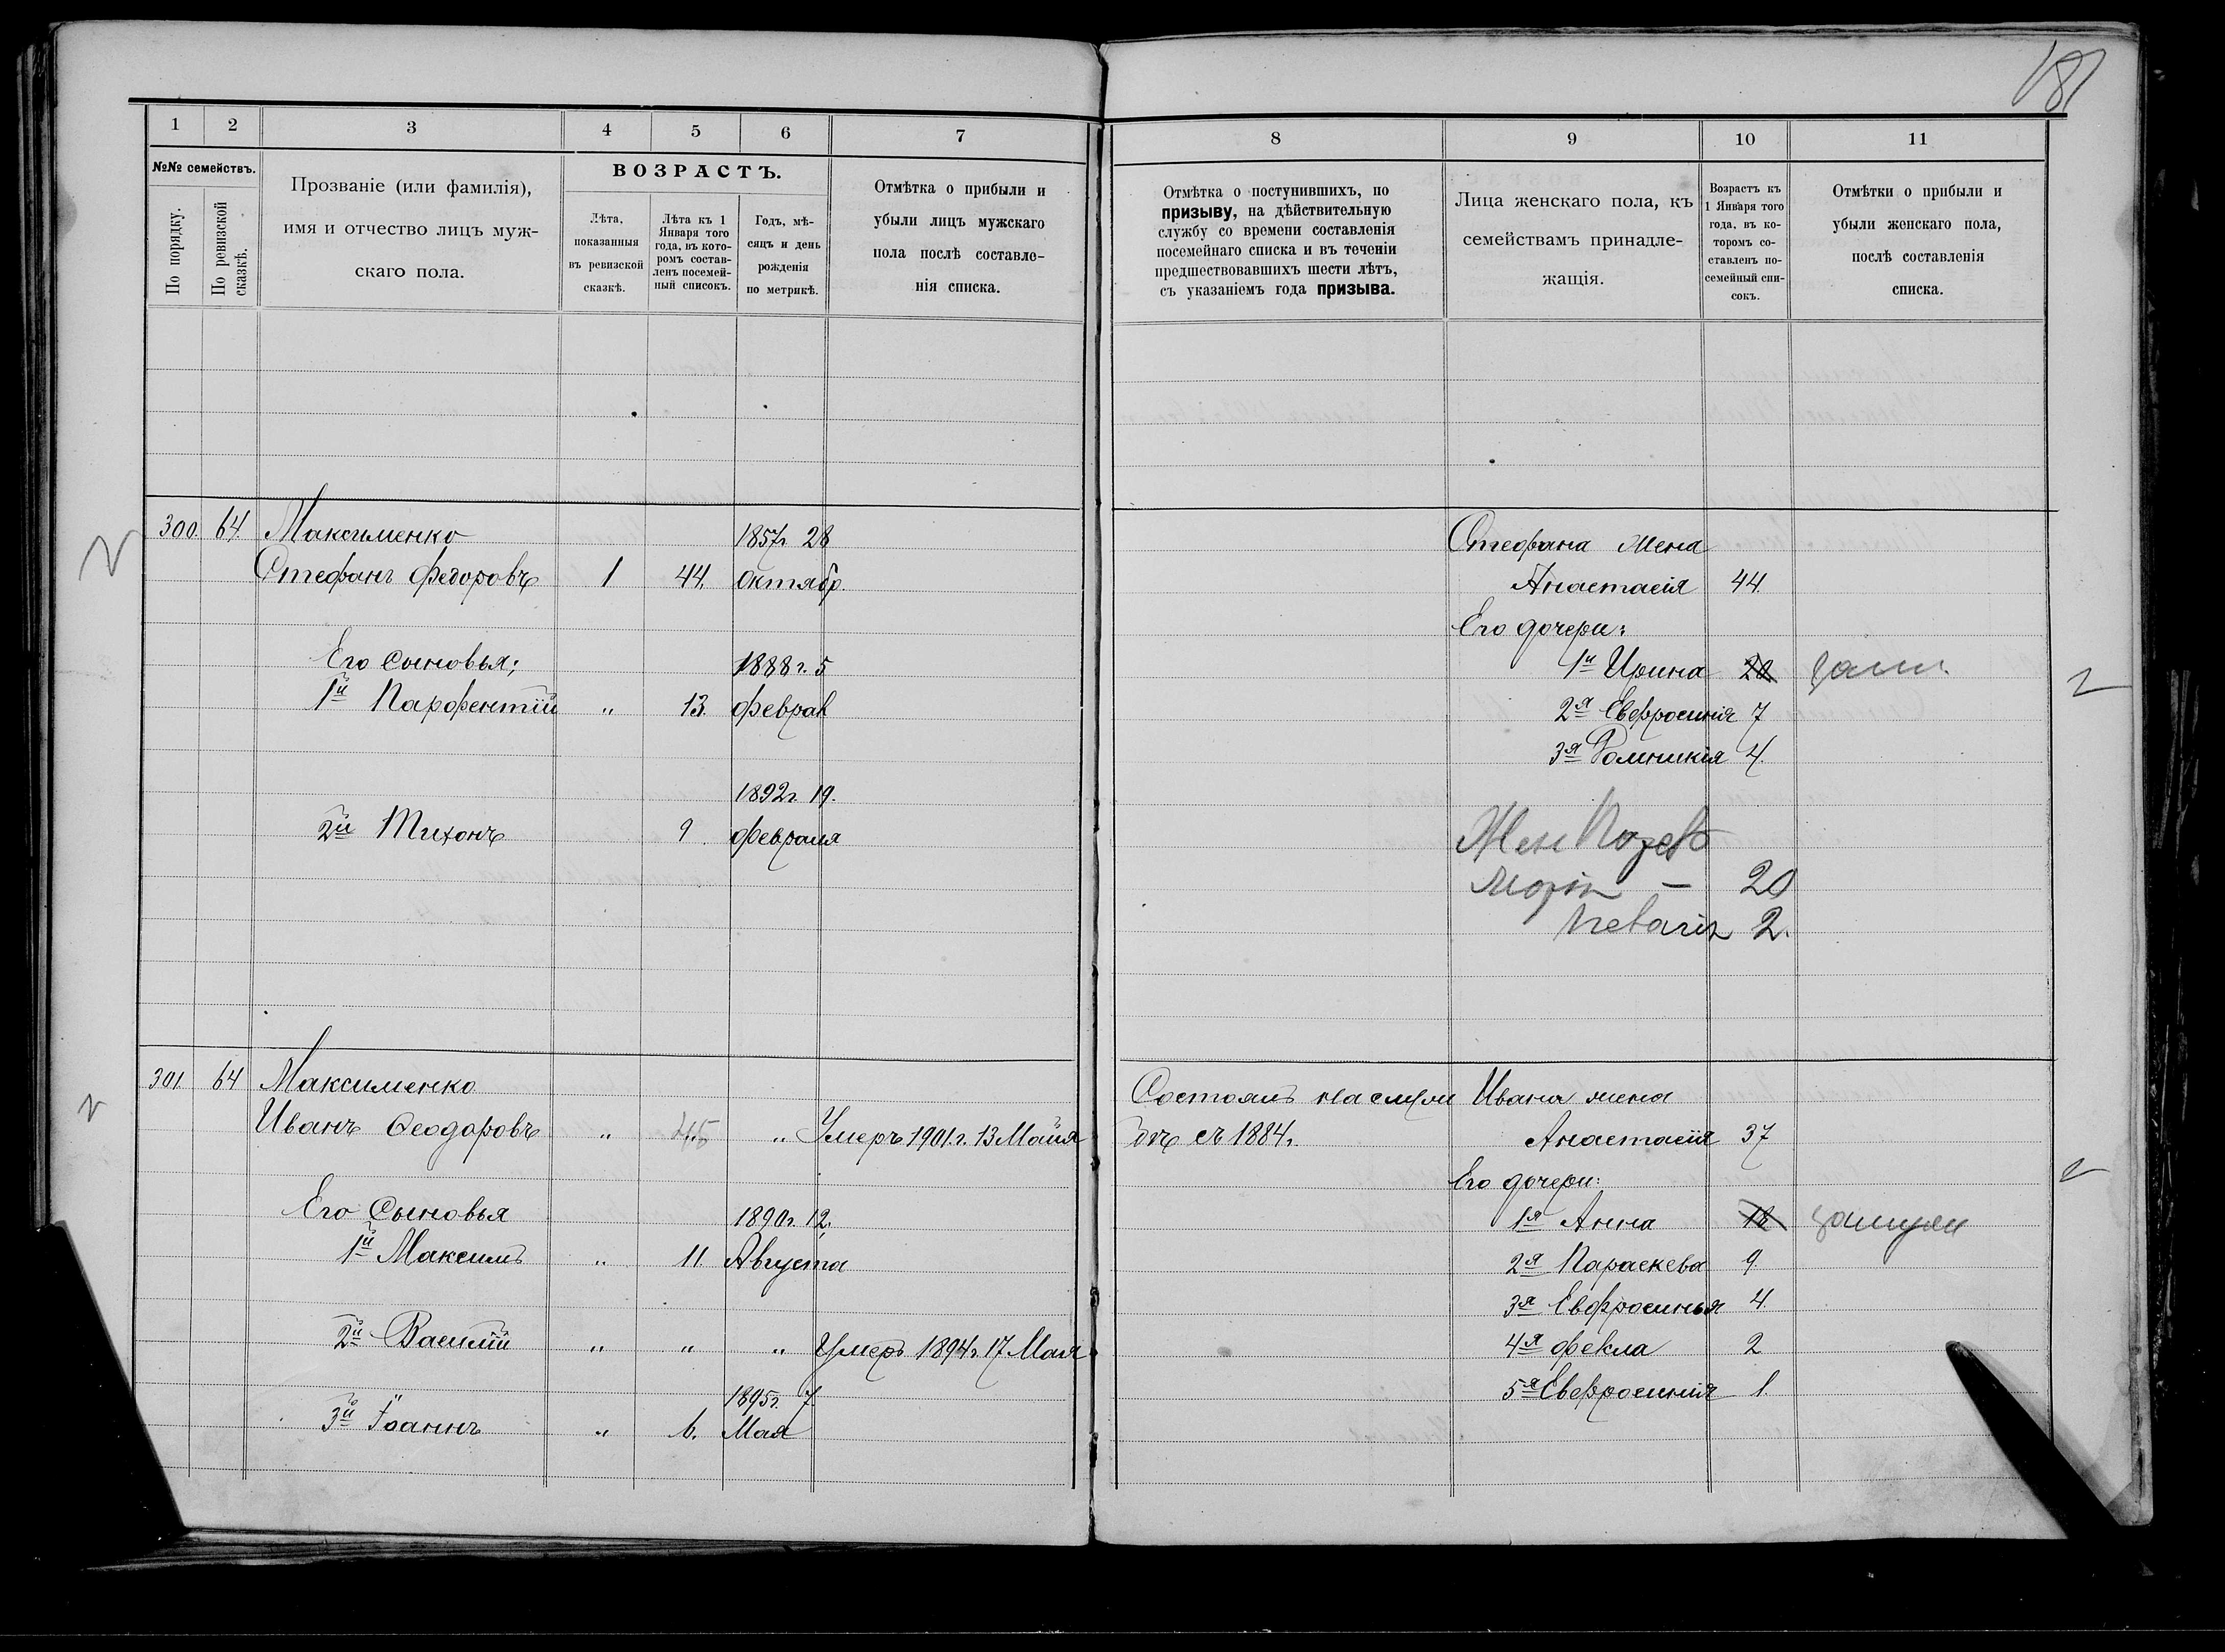 181
1 2 3 4 5 6 7
№№ семействъ.
По порядку.
По ревизской сказкѣ.
Прозваніе (или фамилія),
имя и отчество лицъ муж-
скаго пола.
ВОЗРАСТЪ.
Лѣта,
показанныя
въ ревизской
сказкѣ.
Лѣта къ 1
Января того
года, въ кото-
ромъ состав-
ленъ посемей-
ный список.
Годъ, мѣ-
сяцъ и день
рожденія
по метрикѣ.
Отмѣтка о прибыли и
убыли лицъ мужскаго
пола послѣ составле-
нія списка.
300. 64. Максименко 1857г 28
Стефанъ Федоровъ 1 44. Октябр.
Его сыновья; 1888 г. 5
1й Парфентій „ 13. феврал
1892г 19.
2й Тихонъ 9. февраля
301. 64 Максименко
Иванъ Феодоровъ „ 45 „ Умеръ 1901 г. 13 Майя
Его Сыновья 1890г. 12.
1й Максимъ „ 11. Августа
2й Василій „ „ „ Умеръ 1894г. 17 Мая
1895г. 7.
3й Іоаннъ „ 6. Мая
8 9 10 11
Отмѣтка о поступившихъ, по
призыву, на дѣйствительную
службу со времени составленія
посемейнаго списка и въ теченіи
предшествовавшихъ шести лѣтъ,
съ указаніемъ года призыва.
Лица женскаго пола, къ
семействамъ принадле-
жащія.
Возрастъ къ
1 Января того
года, въ ко-
торомъ со-
ставленъ по-
семейный спи-
сокъ.
Отмѣтки о прибыли и
убыли женскаго пола,
послѣ составленія
списка.
Стефана жена
Анастасія 44.
Его дочери:
1я Ирина 20 зам.
2я Евфросинія 7
3я Домникія 4.
20
2.
Состоялъ на служ Ивана жена
бѣ съ 1884г. Анастасія 37
Его дочери:
1я Анна 18 замужем
2я Параскева 9.
3я Евфросинья 4.
4я Фекла 2
5я Евфросинія 1.